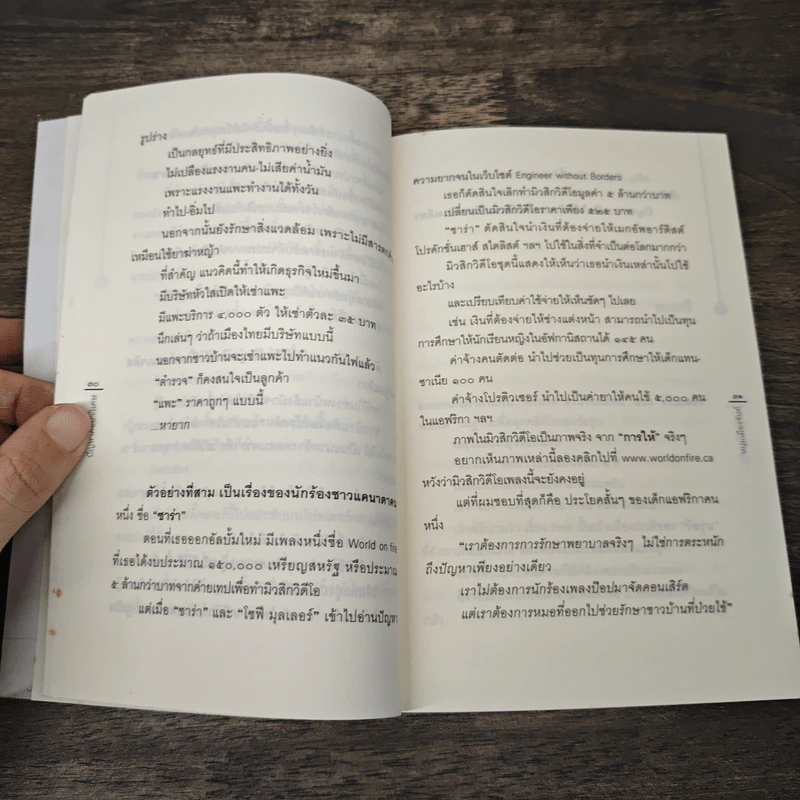 รูปร่าง
เป็นกลยุทธ์ที่มีประสิทธิภาพอย่างยิ่ง
ไม่เปลืองแรงงานคน-ไม่เสียค่าน้ำมัน
เพราะแรงงานแพะทำงานได้ทั้งวัน
ทำไป-อิ่มไป
นอกจากนั้นยังรักษาสิ่งแวดล้อม เพราะไม่มีสารตกค้าง
เหมือนใช้ยาฆ่าหญ้า
ที่สำคัญ แนวคิดนี้ทำให้เกิดธุรกิจใหม่ขึ้นมา
มีบริษัทหัวใสเปิดให้เช่าแพะ
มีแพะบริการ ๔,๐๐๐ ตัว ให้เช่าตัวละ ๓๕ บาท
นึกเล่นๆ ว่าถ้าเมืองไทยมีบริษัทแบบนี้
นอกจากชาวบ้านจะเช่าแพะไปทำแนวกันไฟแล้ว
"ตำรวจ" ก็คงสนใจเป็นลูกค้า
"แพะ" ราคาถูกๆ แบบนี้
...หายาก
ตัวอย่างที่สาม เป็นเรื่องของนักร้องชาวแคนาดาคน
หนึ่ง ชื่อ "ซาร่า"
ตอนที่เธอออกอัลบั้มใหม่ มีเพลงหนึ่งชื่อ World on fire
ที่เธอได้งบประมาณ ๑๕๐,๐๐๐ เหรียญสหรัฐ หรือประมาณ
๕ ล้านกว่าบาทจากค่ายเทปเพื่อทำมิวสิกวิดีโอ
แต่เมื่อ "ซาร่า" และ "โซฟี มุลเลอร์" เข้าไปอ่านปัญหา
๓๐
ความยากจนในเว็บไซต์ Engineer without Borders
เธอก็ตัดสินใจเลิกทำมิวสิกวิดีโอมูลค่า ๕ ล้านกว่าบาท
เปลี่ยนเป็นมิวสิกวิดีโอราคาเพียง ๕๒๕ บาท
"ซาร่า" ตัดสินใจนำเงินที่ต้องจ่ายให้เมกอัพอาร์ติสต์
โปรดักชั่นเฮาส์ สไตลิสต์ ฯลฯ ไปใช้ในสิ่งที่จำเป็นต่อโลกมากกว่า
มิวสิกวิดีโอชุดนี้แสดงให้เห็นว่าเธอนำเงินเหล่านั้นไปใช้
อะไรบ้าง
และเปรียบเทียบค่าใช้จ่ายให้เห็นชัดๆ ไปเลย
เช่น เงินที่ต้องจ่ายให้ช่างแต่งหน้า สามารถนำไปเป็นทุน
การศึกษาให้นักเรียนหญิงในอัฟกานิสถานได้ ๑๔๕ คน
ค่าจ้างคนตัดต่อ นำไปช่วยเป็นทุนการศึกษาให้เด็กแทน-
ซาเนีย ๑๐๐ คน
ค่าจ้างโปรดิวเซอร์ นำไปเป็นค่ายาให้คนไข้ ๕,๐๐๐ คน
ในแอฟริกา ฯลฯ
ภาพในมิวสิกวิดีโอเป็นภาพจริง จาก "การให้" จริงๆ
อยากเห็นภาพเหล่านี้ลองคลิกไปที่ www.worldonfire.ca
หวังว่ามิวสิกวิดีโอเพลงนี้จะยังคงอยู่
แต่ที่ผมชอบที่สุดก็คือ ประโยคสั้นๆ ของเด็กแอฟริกาคน
หนึ่ง
"เราต้องการการรักษาพยาบาลจริงๆ ไม่ใช่การตระหนัก
ถึงปัญหาเพียงอย่างเดียว
เราไม่ต้องการนักร้องเพลงป๊อปมาจัดคอนเสิร์ต
แต่เราต้องการหมอที่ออกไปช่วยรักษาชาวบ้านที่ป่วยไข้"
๓๑
หนุ่มเมืองจันท์